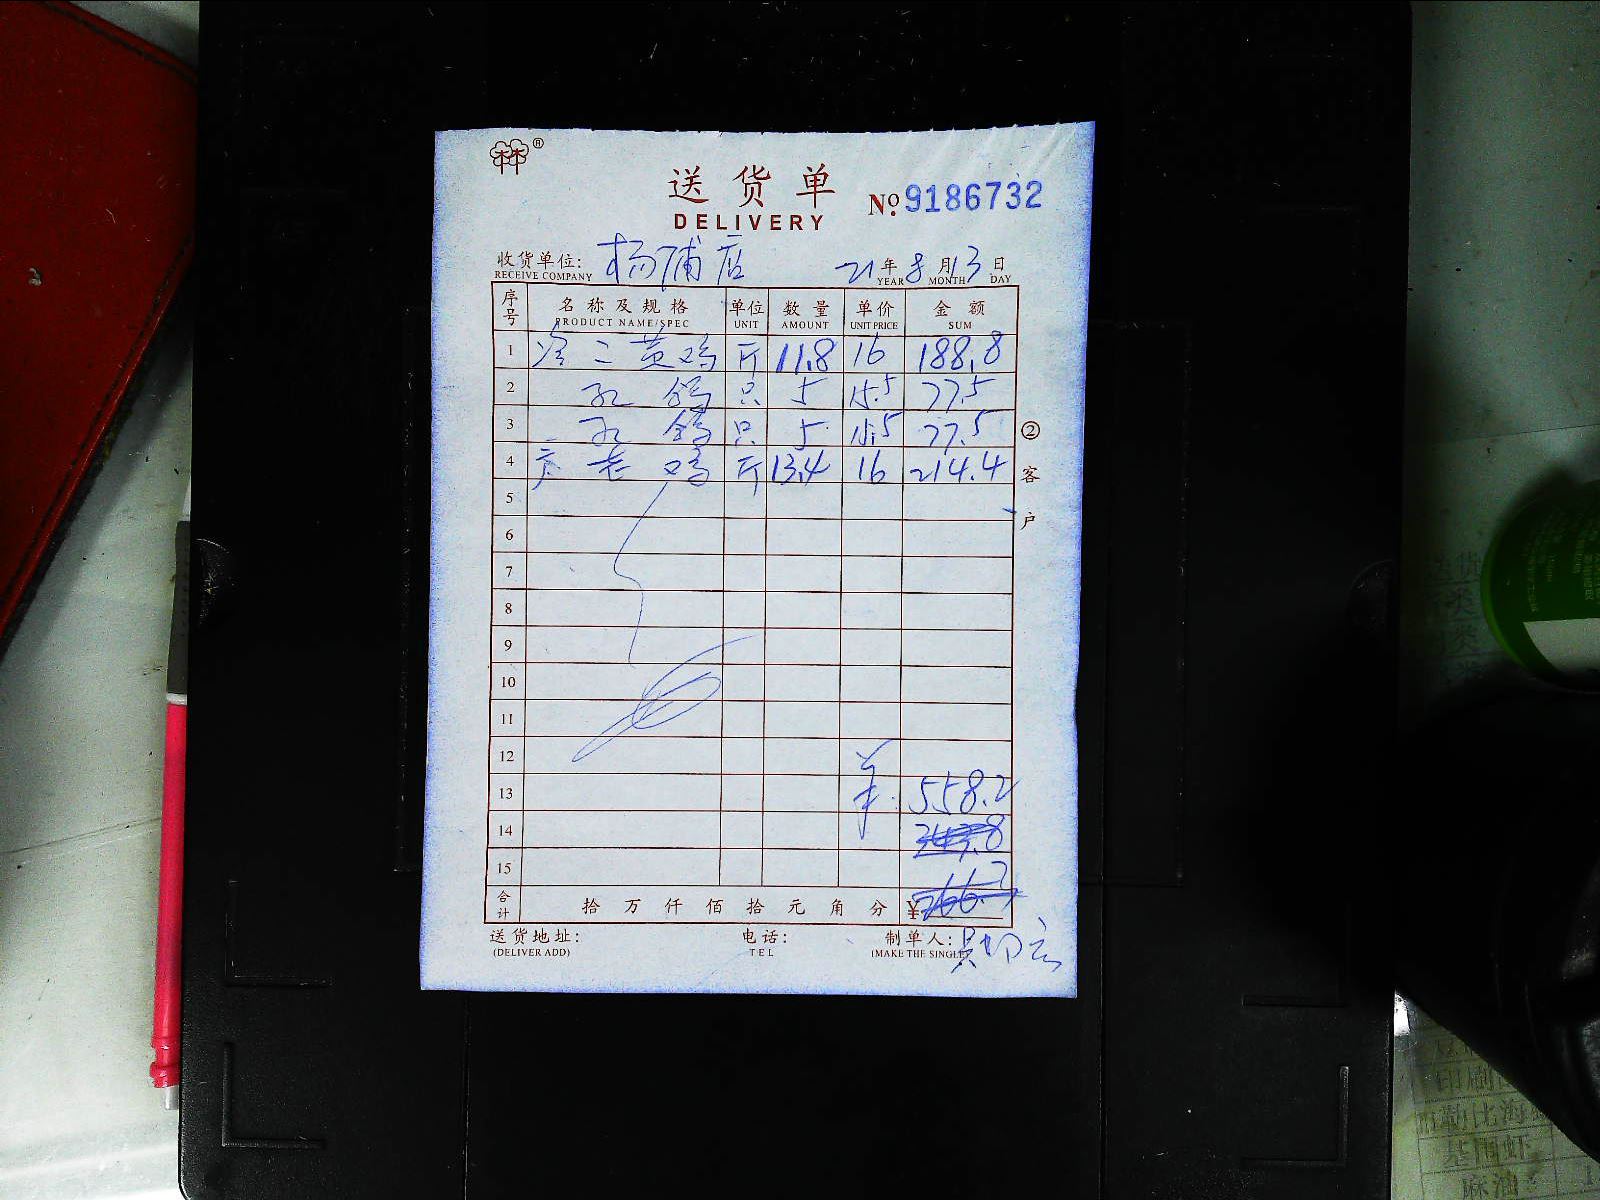 林®
送货单
DELIVERY
No. 9186732
收货单位: 杨浦店 21年 8月 13日
RECEIVE COMPANY YEAR MONTH DAY
序号 名称及规格 单位 数量 单价 金额
PRODUCT NAME/SPEC UNIT AMOUNT UNIT PRICE SUM
1 冷二黄鸡 斤 11.8 16 188.8
2 孔鸽 只 5 15.5 77.5
3 孔鸽 只 5 15.5 77.5
4 老鸡 斤 13.4 16 214.4
5
6
7
8
9
10
11
12
13 558.2
14
15
合计 拾 万 仟 佰 拾 元 角 分 ¥
②客户
送货地址: 电话: 制单人:
(DELIVER ADD) TEL (MAKE THE SINGLE)